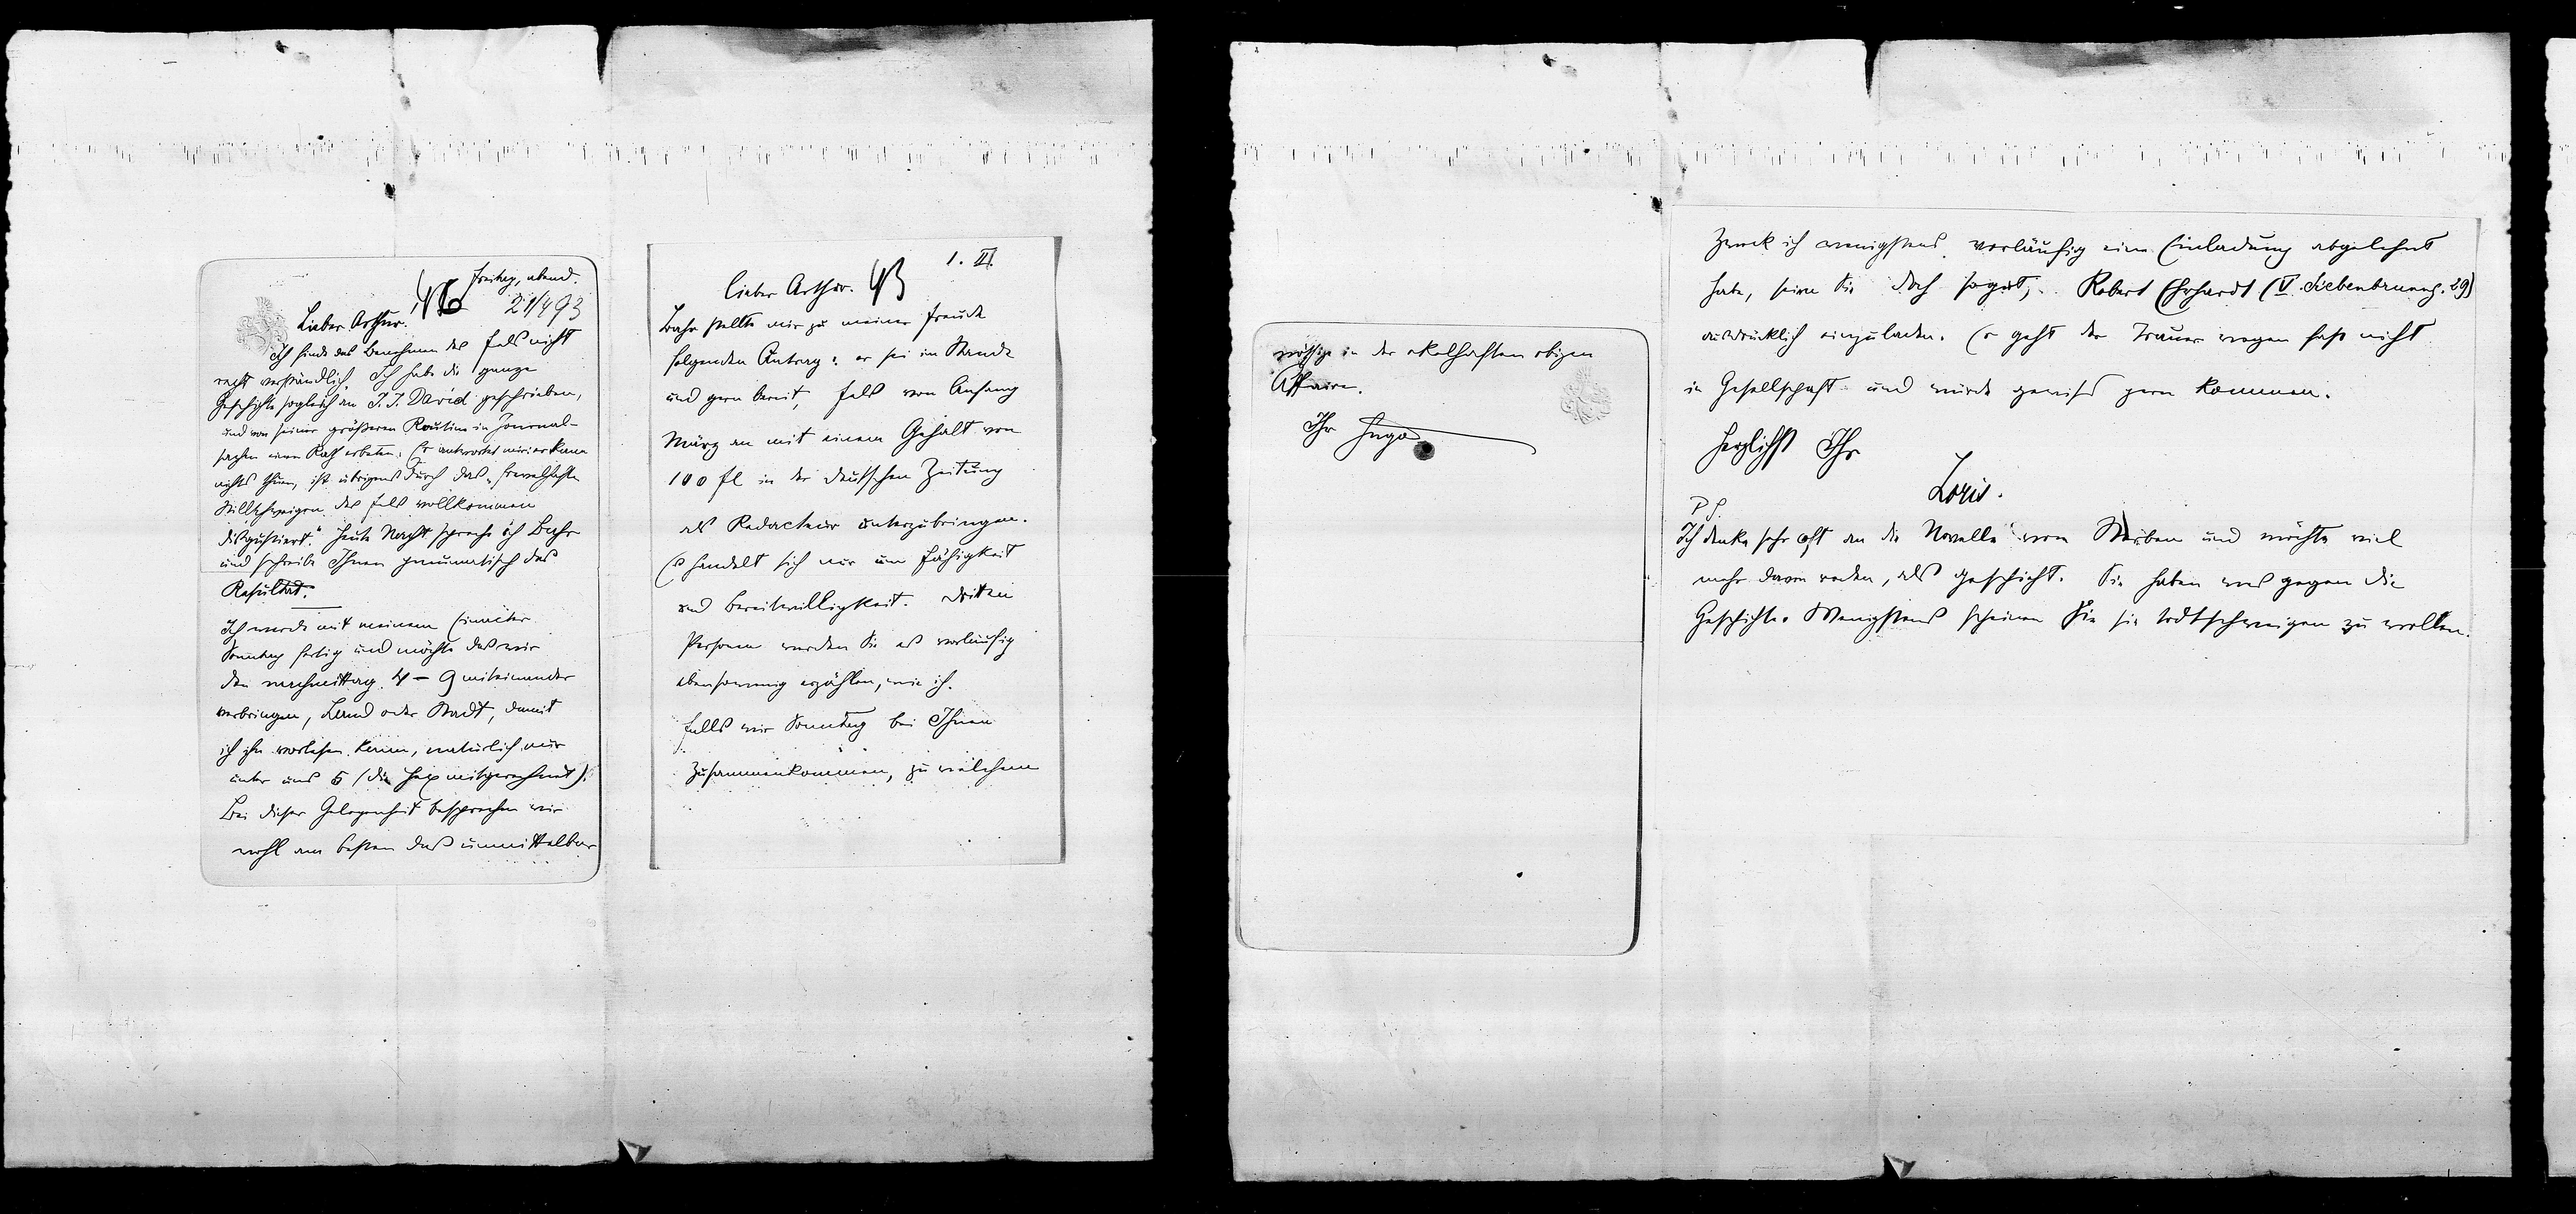 Freitag, abend.
46 21/4 93
Lieber Arthur!
Ich finde das Benehmen des Fels nicht
recht verständlich. Ich habe die ganze
Geschichte sogleich an J. J. David geschrieben,
und von seiner größeren Routine in Journal-
sachen einen Rath erbeten. Er antwortet mir: er kann
nichts thuen, ist übrigens durch das „frevelhafte
Stillschweigen des Fels vollkommen
disgustiert." Heute Nacht spreche ich Bahr
und schreibe Ihnen pneumatisch das
Resultat.
Ich werde mit meinem Einacter
Sonntag fertig und möchte das wir
den nachmittag 4 – 9 miteinander
verbringen, Land oder Stadt, damit
ich ihn vorlesen kann, natürlich nur
unter uns 5 (die Hex mitgerechnet).
Bei dieser Gelegenheit besprechen wir
wohl am besten das unmittelbar
1. II.
lieber Arthur. 43
Bahr stellte mir zu meiner Freude
folgenden Antrag: er sei im Stande
und gern bereit, Fels von Anfang
März an mit einem Gehalt von
100 fl in der deutschen Zeitung
als Redacteur unterzubringen.
Es handelt sich nur um Fähigkeit
und Bereitwilligkeit. Dritten
Personen werden Sie es vorläufig
ebensowenig erzählen, wie ich.
Falls wir Sonntag bei Ihnen
zusammenkommen, zu welchem
nöthige in der ekelhaften obigen
Affaire.
Ihr Hugo
Zweck ich wenigstens vorläufig eine Einladung abgelehnt
habe, seien Sie doch so gut, Robert Ehrhardt (V. Siebenbrunng. 29)
ausdrücklich einzuladen. Er geht der Trauer wegen fast nicht
in Gesellschaft und würde gewiss gern kommen.
Herzlichst Ihr
Loris.
PS.
Ich denke sehr oft an die Novelle vom Sterben und möchte viel
mehr davon reden, als geschieht. Sie haben was gegen die
Geschichte. Wenigstens scheinen Sie sie todtschweigen zu wollen.